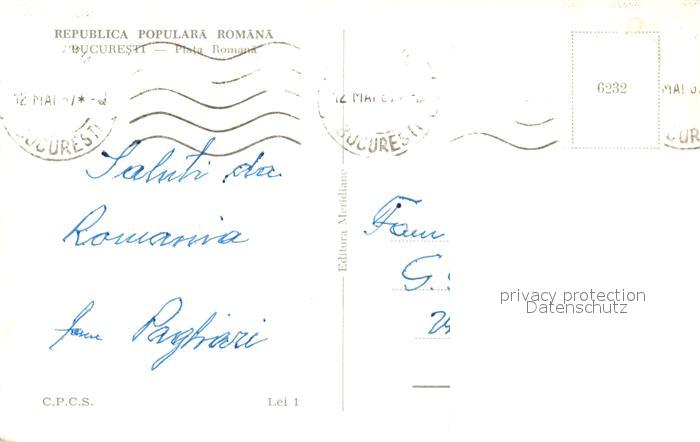 REPUBLICA POPULARĂ ROMÂNĂ
BUCUREȘTI — Piața Romană
12 MAI 67 *
BUCUREȘTI
12 MAI 6
BUCUREȘTI
6232
MAI 6
CUR
Saluti da
Romania
fam Pagliari
Editura Meridiane
Fam
G.
privacy protection
Datenschutz
C.P.C.S.
Lei 1